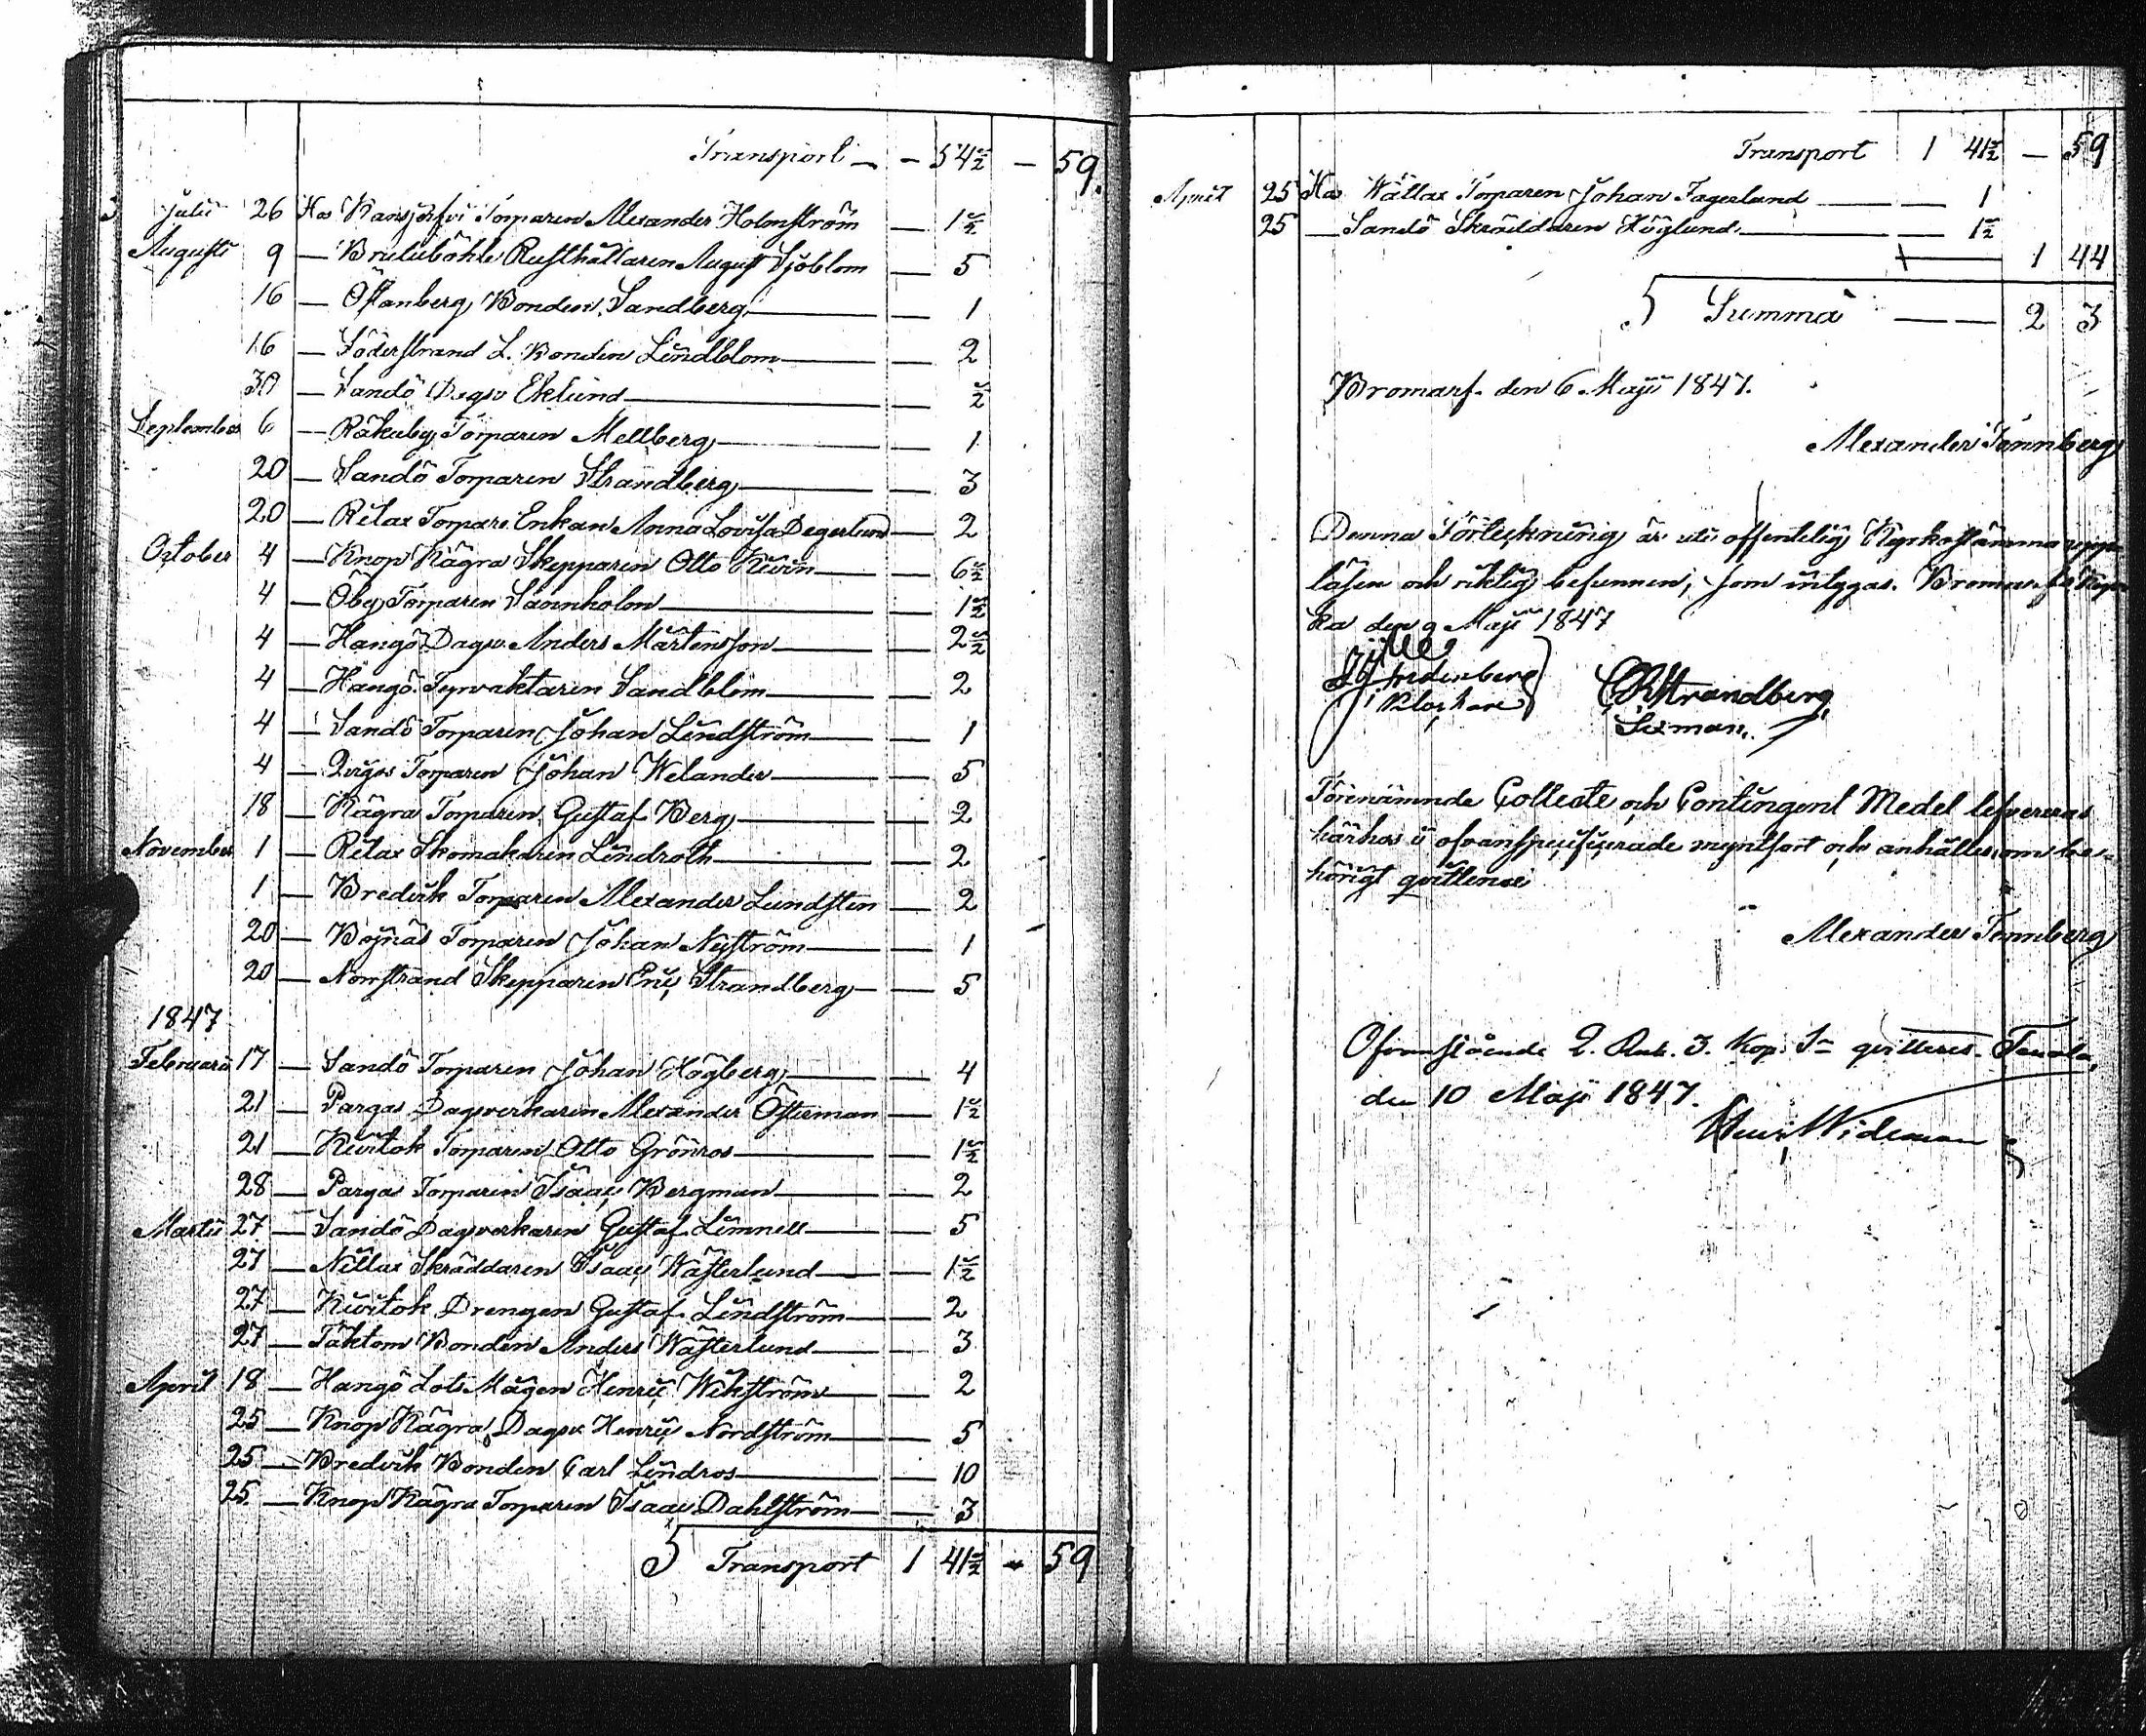 Transport — - 54½ — 59.
Julii 26 Hos Kansjerfvi Torparen Alexander Holmström — 1½
Augusti 9 — Bruluböhle Rusthållaren August Sjöblom — 5
16 — Östanberg Bonden Sandberg — 1
16 — Söderstrand L. Bonden Lindblom — 2
30 — Sandö Dagsv Eklund — ½
September 6 — Råkuby Torparen Mellberg — 1
20 — Sandö Torparen Strandberg — 3
20 — Rilax Torpare Enkan Anna Lovisa Degerlund — 2
October 4 — Knop Kägra Skepparen Otto — 6½
4 — Öby Torparen — 1½
4 — Hangö Dagsv. Anders Mårtensson — 2½
4 — Hangö Fyrvaktaren Sandblom — 2
4 — Sandö Torparen Johan Lindström — 1
4 — Torparen Johan Welander — 5
18 — Kägra Torparen Gustaf Berg — 2
November 1 — Rilax Skomakaren Lindroth — 2
1 — Bredvik Torparen Alexander Lundsten — 2
20 — Bojnäs Torparen Johan Nyström — 1
20 — Norrstrand Skepparen Eric Strandberg — 5
1847
Februarii 17 — Sandö Torparen Johan Högberg — 4
21 — Pargas Dagsverkaren Alexander Österman — 1½
21 — Kivitok Torparen Otto Grönros — 1½
28 — Pargas Torparen Isaac Bergman — 2
Martii 27 — Sandö Dagsverkaren Gustaf Limnell — 5
27 — Nillax Skräddaren Isaac Wästerlund — 1½
27 — Kivitok Drengen Gustaf Lindström — 2
27 — Täktom Bonden Anders Wästerlund — 3
April 18 — Hangö Lots Mågen Henric Wikström — 2
25 — Knop Kägra Dagsv Henric Nordström — 5
25 — Bredvik Bonden Carl Lindros — 10
25 — Knop Kägra Torparen Isaac Dahlström — 3
Transport 1 41½ - 59
Transport 1 41½ — 59
April 25 Hos Wättlax Torparen Johan Fagerlund — 1
25 — Sandö Skräddaren Höglund — 1½
1 44
Summa — 2 3
Bromarf den 6 Maji 1847.
Alexander Tennberg
Denna Förteckning är uti offentelig Kyrkostämma upp-
läsen och riktig befunnen, som intygas. Bromarfs
ka den 9 Maji 1847
Klockare
Strandberg
Sexman.
Förenämnde Collecte och Contingent Medel lefvereras
härhos i ofvanspecificerade myntsort och anhålles om be-
hörigt qvittence
Alexander Tennberg
Ofvanstående 2. Rub. 3. Kop. Sr qvitteres. Tenala
den 10 Maji 1847.
Wideman